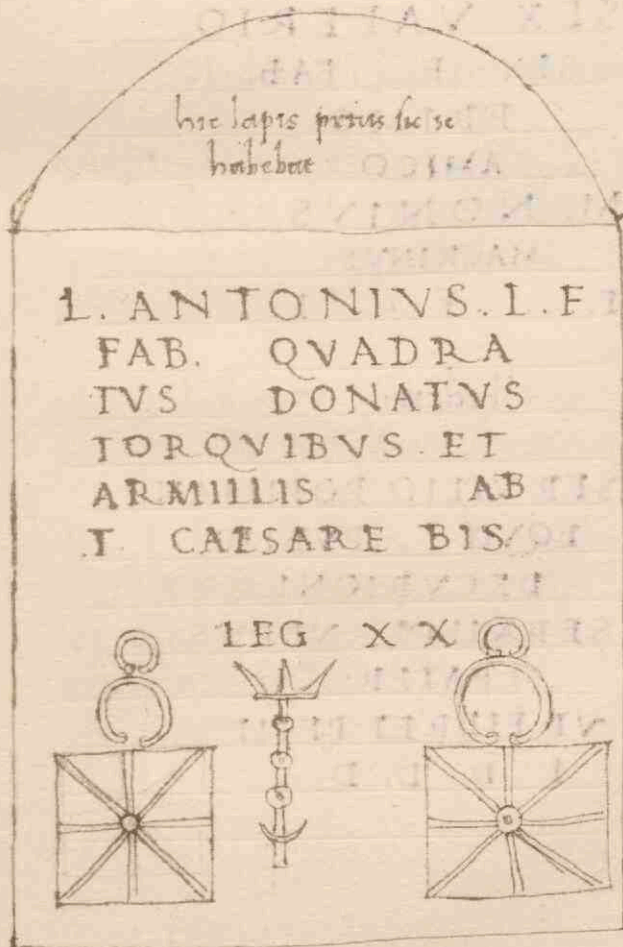 hic lapis prius sic se
habebat
L. ANTONIVS. L. F
FAB. QVADRA
TVS DONATVS
TORQVIBVS. ET
ARMILLIS AB
.T. CAESARE BIS.
LEG X X